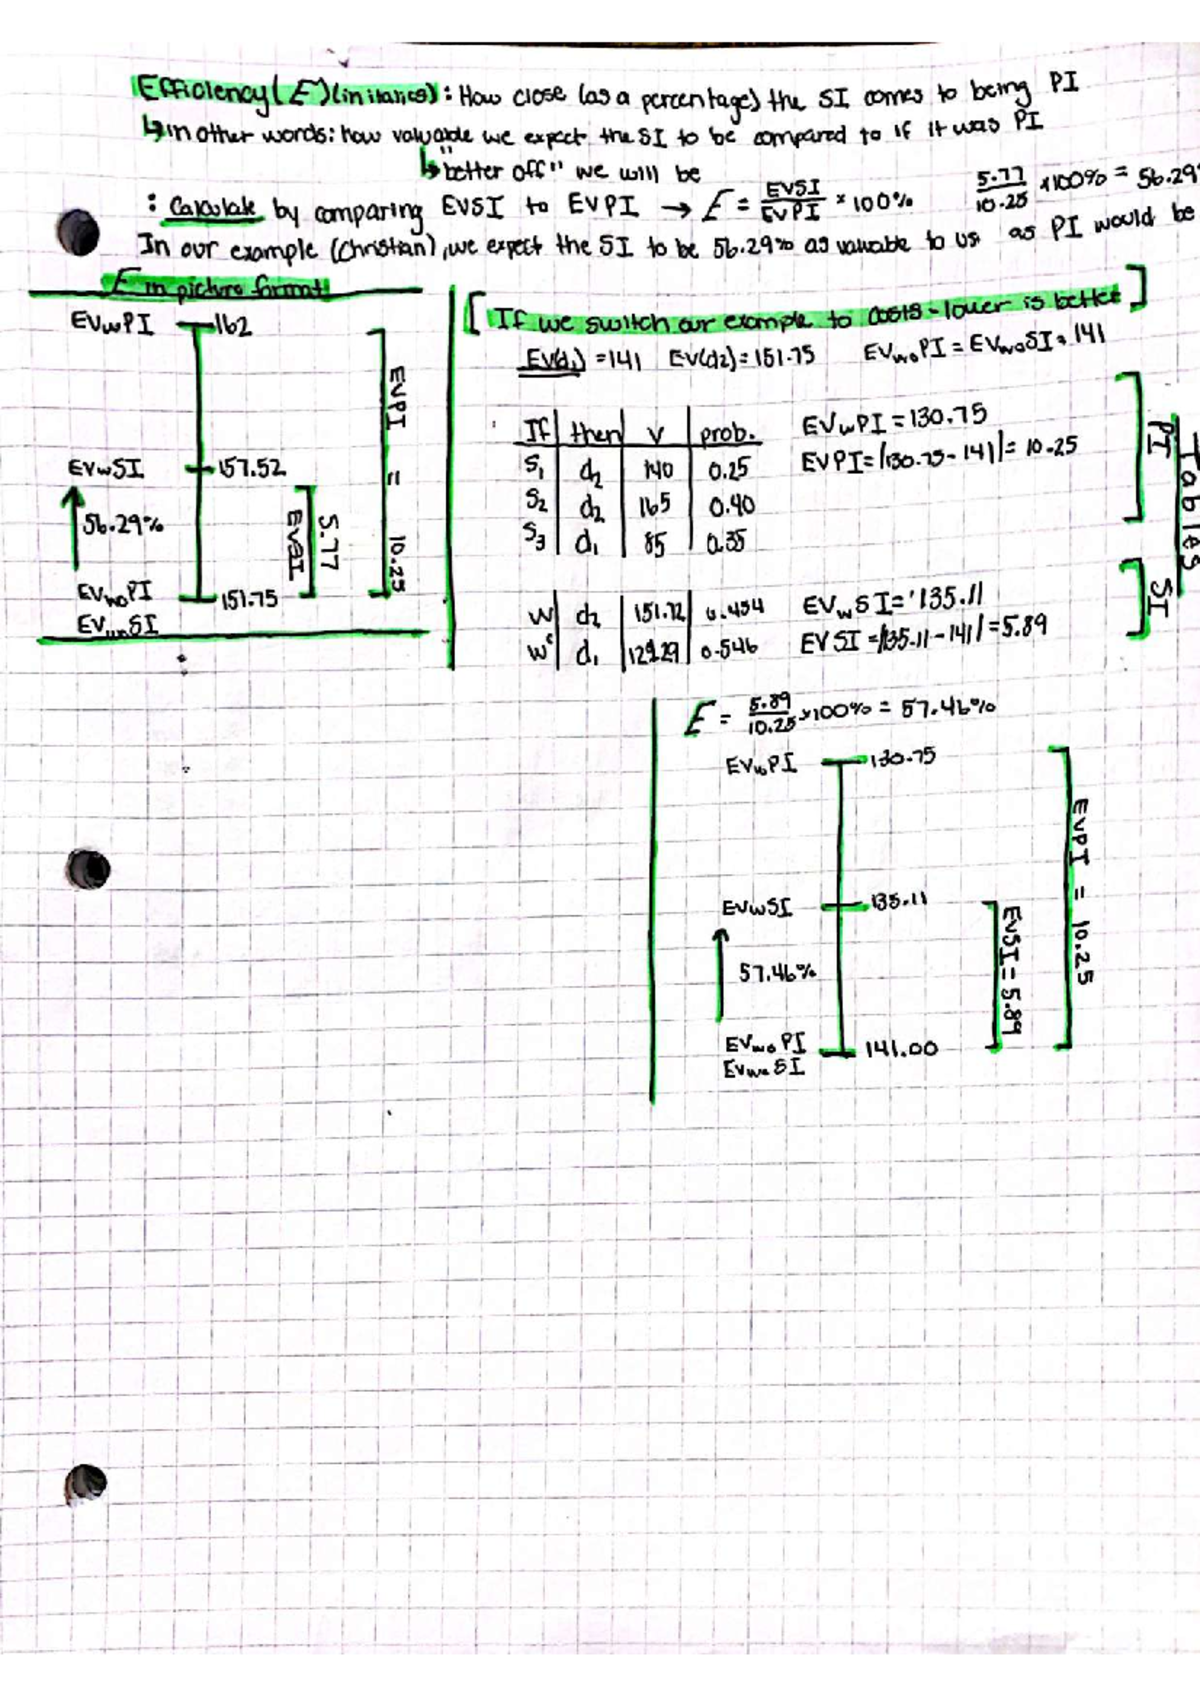 Efficiency (E) (in italics): How close (as a percentage) the SI comes to being PI
↳ in other words: how valuable we expect the SI to be compared to if it was PI
↳ "better off" we will be
: Calculate by comparing EVSI to EVPI → E = EVSI/EVPI × 100% 5.77/10.25 × 100% = 56.29%
In our example (Christian), we expect the SI to be 56.29% as valuable to us as PI would be
E in picture format
EVwPI 162
EVwSI 157.52
56.29%
EVwoPI 151.75
EVwoSI
5.77
EVSI
EVPI = 10.25
[If we switch our example to costs - lower is better]
EV(d1) = 141 EV(d2) = 151.75 EVwoPI = EVwoSI = 141
If then V prob.
S1 d2 140 0.25
S2 d2 165 0.40
S3 d1 85 0.35
EVwPI = 130.75
EVPI = |130.75 - 141| = 10.25
PI
Tables
W d2 151.72 0.454
Wc d1 0.546
EVwSI = 135.11
EVSI = |135.11 - 141| = 5.89
SI
E = 5.89/10.25 × 100% = 57.46%
EVwPI 130.75
EVwSI 135.11
57.46%
EVwoPI 141.00
EVwoSI
EVSI = 5.89
EVPI = 10.25